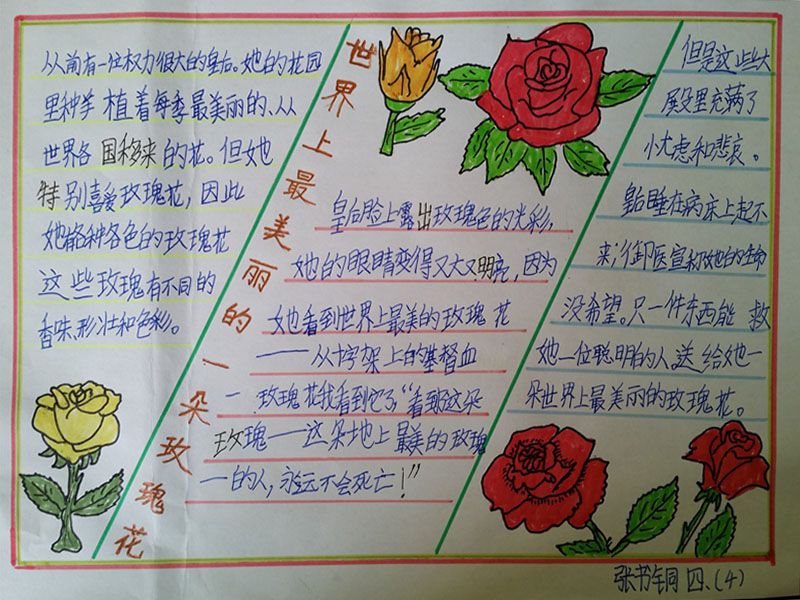 世界上最美丽的一朵玫瑰花
从前有一位权力很大的皇后。她的花园
里种植着每季最美丽的、从
世界各国移来的花。但她
特别喜爱玫瑰花，因此
她有各种各色的玫瑰花
这些玫瑰有不同的
香味、形状和色彩。
但是这些大
屋没里充满了
忧虑和悲哀。
皇后睡在病床上起不
来，御医宣称她的生命
没希望。只一件东西能救
她一位聪明的人，送给她一
朵世界上最美丽的玫瑰花。
皇后脸上露出玫瑰色的光彩，
她的眼睛变得又大又明亮，因为
她看到世界上最美的玫瑰花
——从十字架上的基督血
玫瑰花我看到它了“看到这朵
玫瑰——这朵地上最美的玫瑰
一的人，永远不会死亡！”
张书铜 四、(4)